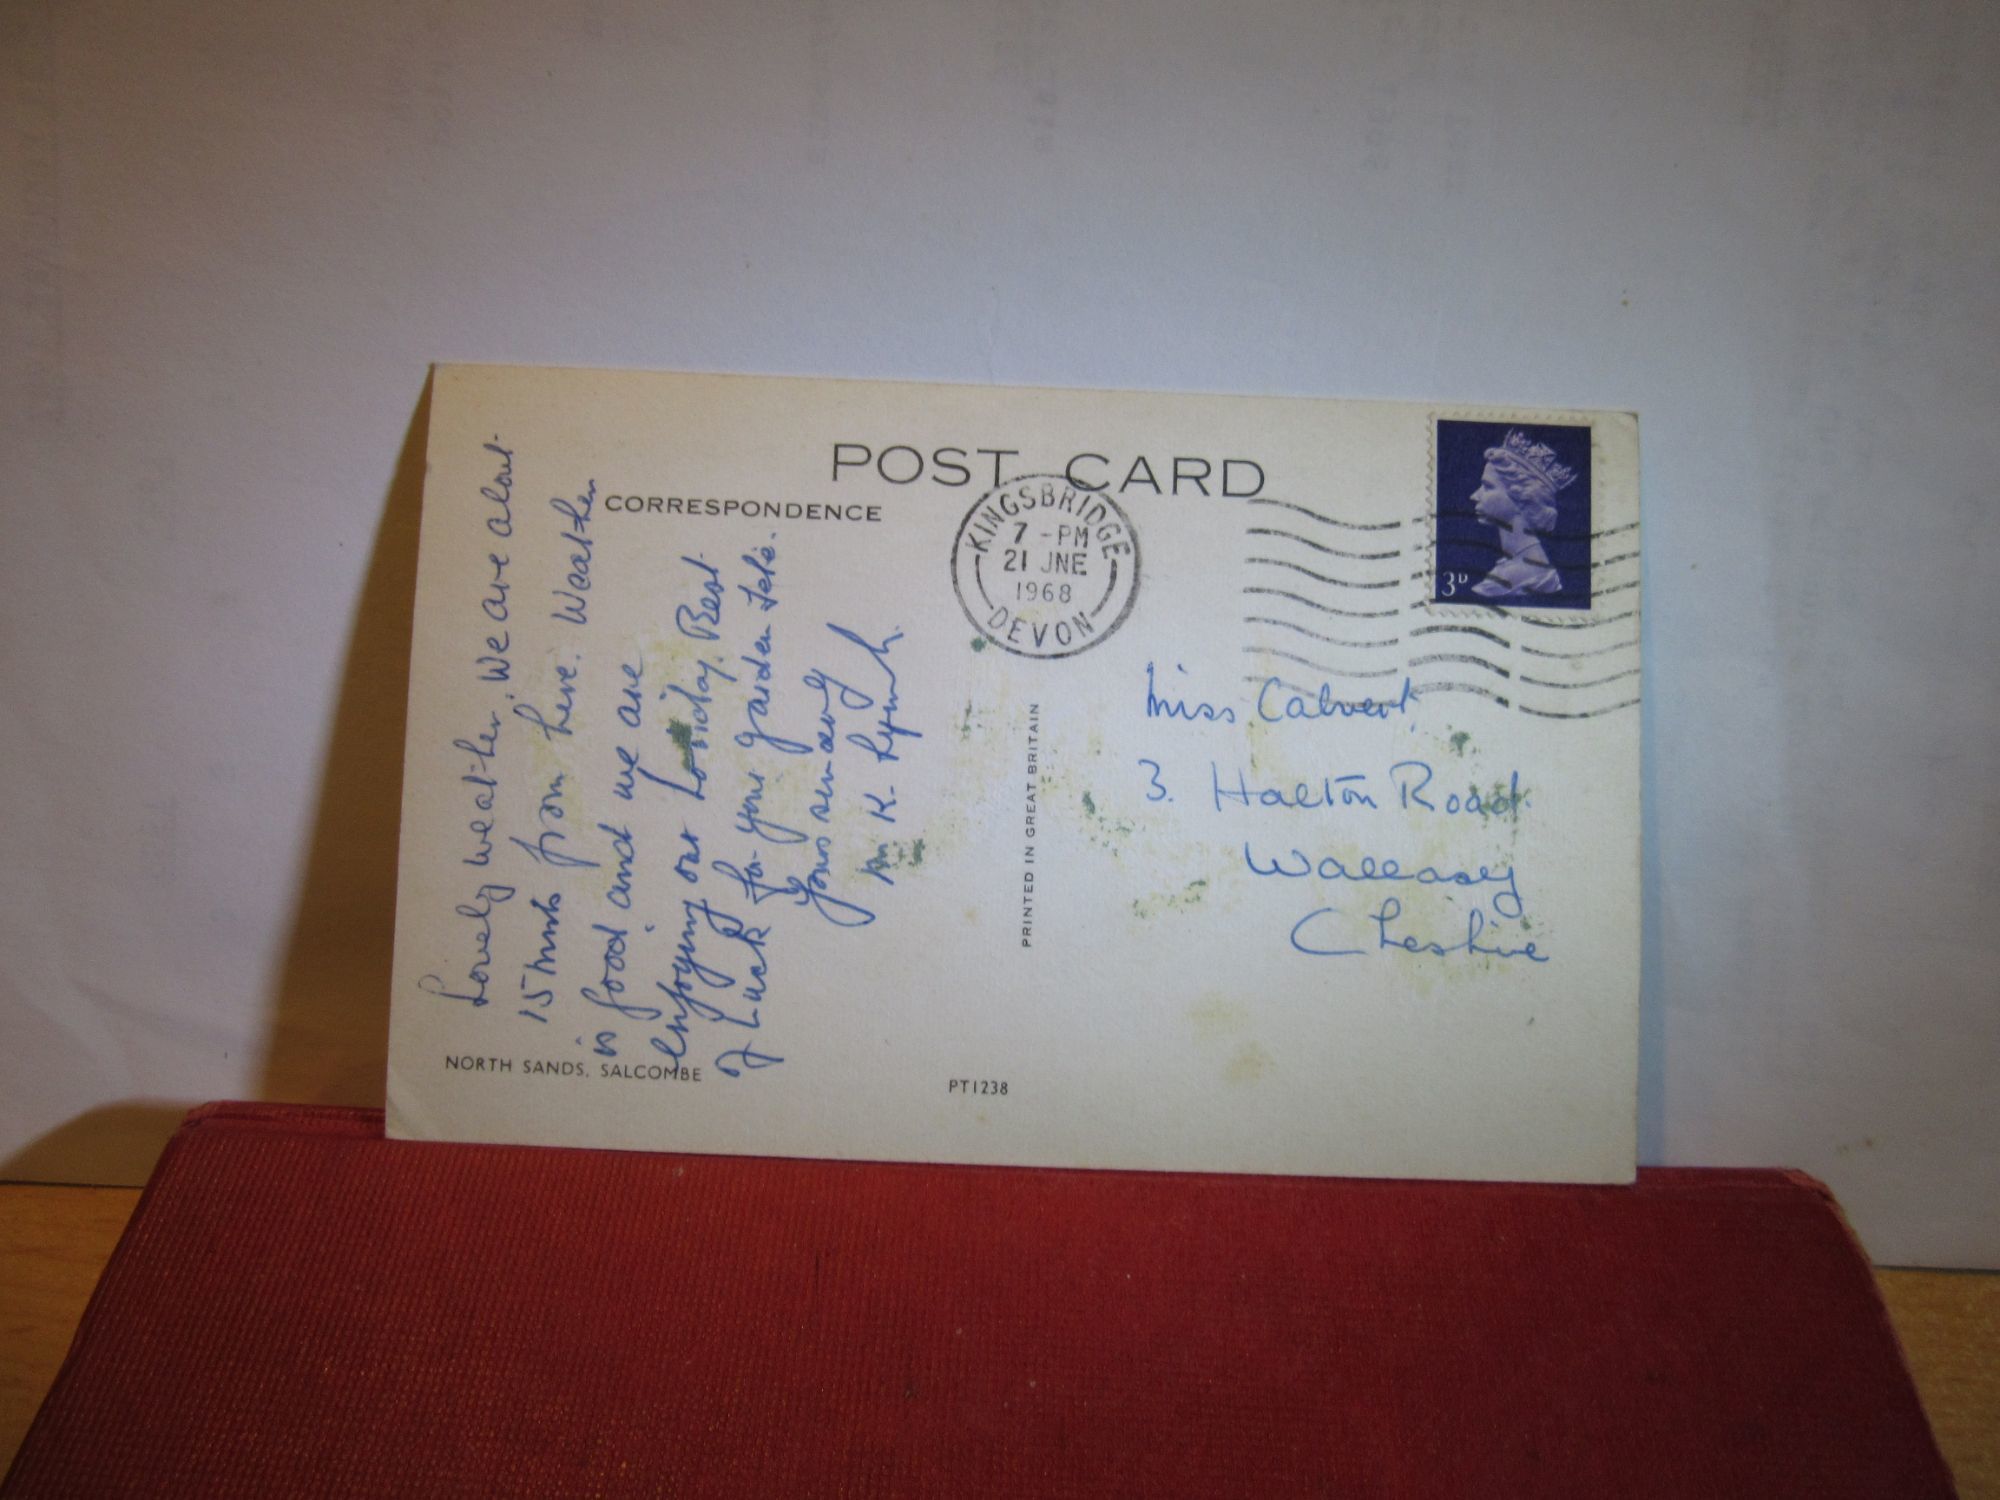 POST CARD
CORRESPONDENCE
KINGSBRIDGE
7 - PM
21 JNE
1968
DEVON
3D
Lovely weather. We are about
15 mins from here. Weather
is good and we are
enjoying our holiday. Best
of Luck for your garden fete.
Yours sincerely
M K.
PRINTED IN GREAT BRITAIN
Miss Calvert
3. Halton Road
Wallasey
Cheshire
NORTH SANDS, SALCOMBE
PT1238